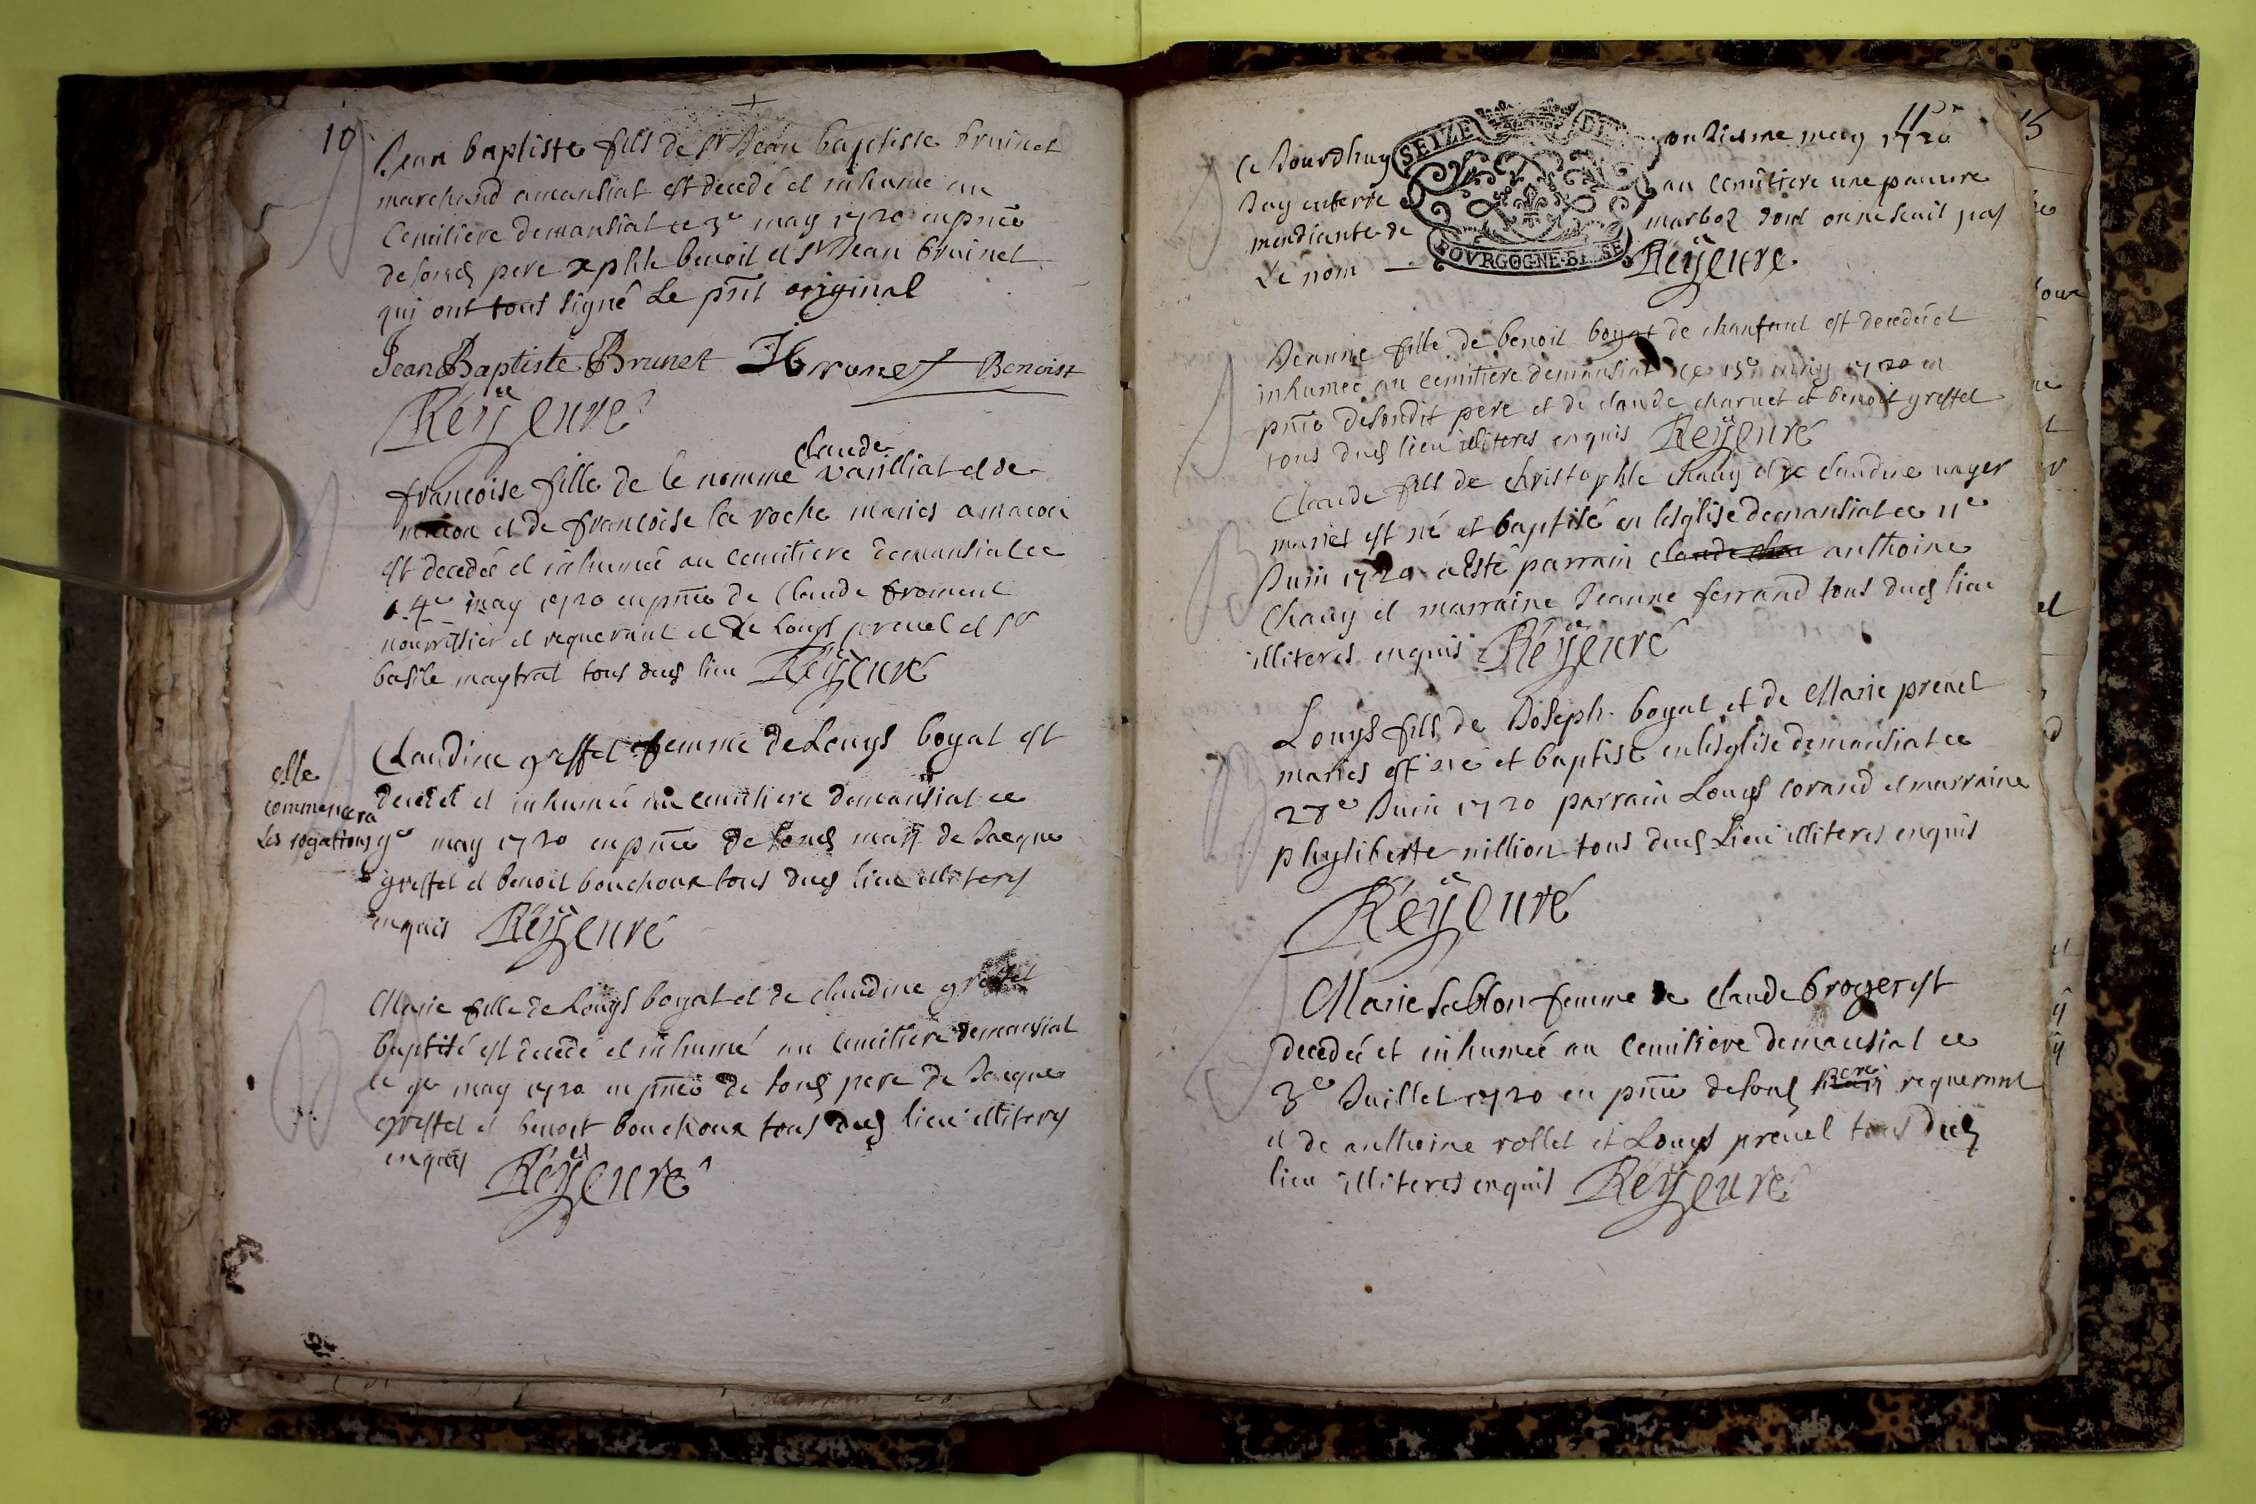 10
Jean baptiste fils de Sr Jean baptiste bruinet
marchand a mansiat est decedé et inhumé au
Cemitiere de mansiat ce 3e may 1720 en pnce
de sond pere xphle benoit et Sr Jean bruinet
qui ont tous signé le pnt original
Jean Baptiste Brunet JBrunet Benoist
Reÿ curé
claude
francoise fille de le nomme varilliat et de
macon et de francoise la roche maries a macon
est decedée et inhumée au cemitiere de mansiat ce
4e may 1720 en pnce de Claude froment
nourrissier et requerant et de Louys prevel et Sr
basile maystrat tous dud lieu Reÿ curé
elle
commencera
les rogations
Claudine greffet femme de Louys boyat est
decedée et inhumée au cemitiere de mansiat ce
9e may 1720 en pnce de sond mary de Jacque
greffet et benoit bouchoux tous dud lieu illiteres
enquis Reÿ curé
Marie fille de Louys boyat et de claudine greffet
baptisé est decedé et inhumé au Cemitiere de mansiat
ce 9e may 1720 en pnce de sond pere de Jacque
greffet et benoit bouchoux tous dud lieu illiteres
enquis Reÿ curé
11
15
SEIZE DE
BOVRGOGNE BRESSE
Ce Jourdhuy onziesme may 1720
Jay enterré au Cemitiere une pauvre
mendiante de marboz dont on ne scait pas
Le nom — Reÿ curé
Jeanne fille de benoit boyat de chanfant est decedée et
inhumée au cemitiere de mansiat ce 15e may 1720 en
pnce de sondit pere et de claude charvet et benoit greffet
tous dud lieu illiteres enquis Reÿ curé
Claude fils de christophle chavy et de claudine mayer
mariés est né et baptisé en lesglise de mansiat ce 11e
Juin 1720 a esté parrain claude cha anthoine
Chavy et marraine Jeanne ferrand tous dud lieu
illiteres enquis Reÿ curé
Louys fils de Joseph boyat et de Marie prevel
mariés est né et baptisé en lesglise de mansiat ce
28e Juin 1720 parrain Louys corand et marraine
phyliberte nillion tous dud Lieu illiteres enquis
Reÿ curé
Marie sablon femme de claude broyer est
decedée et inhumée au Cemitiere de mansiat ce
3e Juillet 1720 en pnce de sond requerant
et de anthoine rollet et Louys prevel tous dud
lieu illiteres enquis Reÿ curé